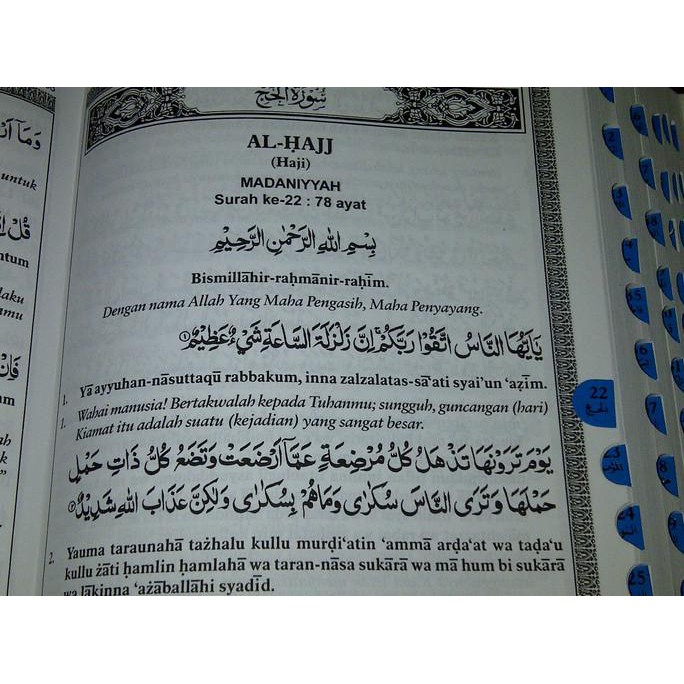 سُورَةُ الْحَجِّ
AL-ḤAJJ
(Haji)
MADANIYYAH
Surah ke-22 : 78 ayat
بِسْمِ اللّٰهِ الرَّحْمٰنِ الرَّحِيْمِ
Bismillāhir-raḥmānir-raḥīm.
Dengan nama Allah Yang Maha Pengasih, Maha Penyayang.
يٰٓاَيُّهَا النَّاسُ اتَّقُوْا رَبَّكُمْۚ اِنَّ زَلْزَلَةَ السَّاعَةِ شَيْءٌ عَظِيْمٌ ۝١
1. Yā ayyuhan-nāsuttaqū rabbakum, inna zalzalatas-sā‘ati syai'un ‘aẓīm.
1. Wahai manusia! Bertakwalah kepada Tuhanmu; sungguh, guncangan (hari)
Kiamat itu adalah suatu (kejadian) yang sangat besar.
يَوْمَ تَرَوْنَهَا تَذْهَلُ كُلُّ مُرْضِعَةٍ عَمَّآ اَرْضَعَتْ وَتَضَعُ كُلُّ ذَاتِ حَمْلٍ
حَمْلَهَا وَتَرَى النَّاسَ سُكٰرٰى وَمَا هُمْ بِسُكٰرٰى وَلٰكِنَّ عَذَابَ اللّٰهِ شَدِيْدٌ ۝٢
2. Yauma taraunahā tażhalu kullu murḍi‘atin ‘ammā arḍa‘at wa taḍa‘u
kullu żāti ḥamlin ḥamlahā wa taran-nāsa sukārā wa mā hum bi sukārā
wa lākinna ‘ażāballāhi syadīd.
وَمَآ
untuk
قُلْ
ntum
laku
22
الحج
23
24
25